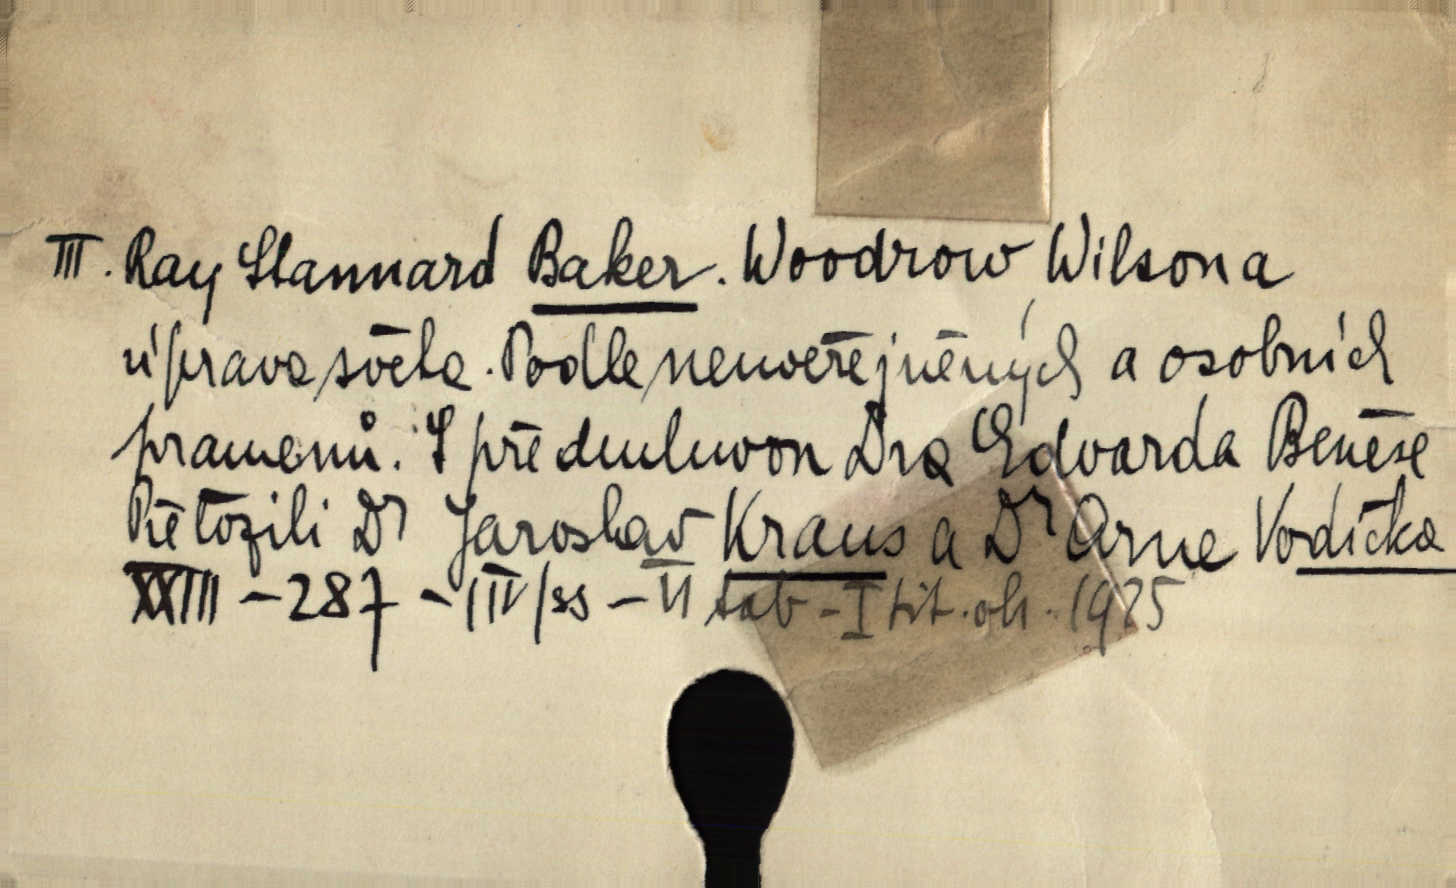 III. Ray Stannard Baker. Woodrow Wilson a
úprava světa. Podle neuveřejněných a osobních
pramenů. S předmluvou Dra Edvarda Beneše
Přeložili Dr Jaroslav Kraus a Dr Arne Vodička
XXIII - 287 - IIV/ss - VI tab - I tit. ob. 1925